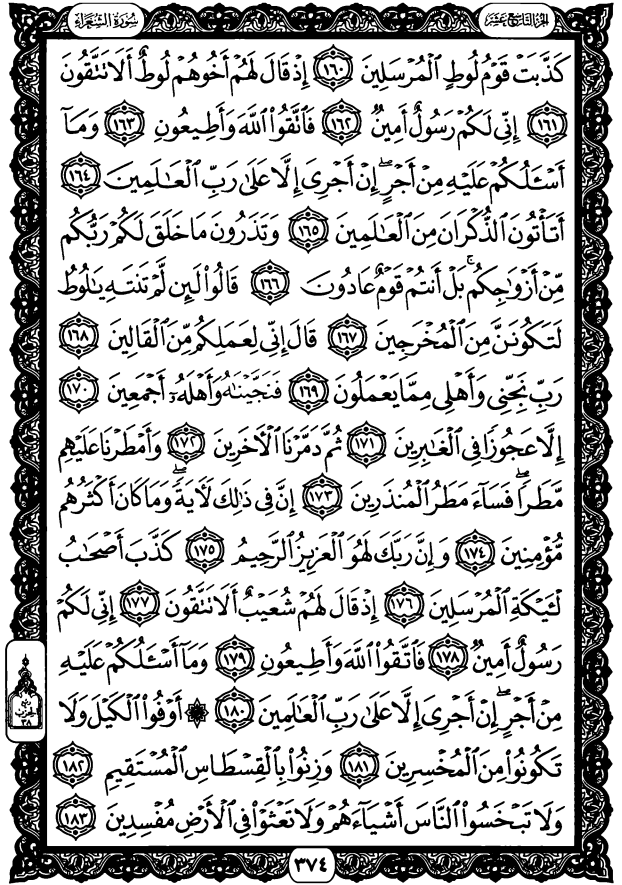 الجزء التاسع عشر
سورة الشعراء
كَذَّبَتْ قَوْمُ لُوطٍ الْمُرْسَلِينَ ١٦٠ إِذْ قَالَ لَهُمْ أَخُوهُمْ لُوطٌ أَلَا تَتَّقُونَ
١٦١ إِنِّي لَكُمْ رَسُولٌ أَمِينٌ ١٦٢ فَاتَّقُوا اللَّهَ وَأَطِيعُونِ ١٦٣ وَمَآ
أَسْـَٔلُكُمْ عَلَيْهِ مِنْ أَجْرٍ ۖ إِنْ أَجْرِيَ إِلَّا عَلَىٰ رَبِّ الْعَـٰلَمِينَ ١٦٤
أَتَأْتُونَ الذُّكْرَانَ مِنَ الْعَـٰلَمِينَ ١٦٥ وَتَذَرُونَ مَا خَلَقَ لَكُمْ رَبُّكُم
مِّنْ أَزْوَٰجِكُم ۚ بَلْ أَنتُمْ قَوْمٌ عَادُونَ ١٦٦ قَالُوا لَئِن لَّمْ تَنتَهِ يَـٰلُوطُ
لَتَكُونَنَّ مِنَ الْمُخْرَجِينَ ١٦٧ قَالَ إِنِّي لِعَمَلِكُم مِّنَ الْقَالِينَ ١٦٨
رَبِّ نَجِّنِي وَأَهْلِي مِمَّا يَعْمَلُونَ ١٦٩ فَنَجَّيْنَـٰهُ وَأَهْلَهُۥٓ أَجْمَعِينَ ١٧٠
إِلَّا عَجُوزًا فِي الْغَـٰبِرِينَ ١٧١ ثُمَّ دَمَّرْنَا الْآخَرِينَ ١٧٢ وَأَمْطَرْنَا عَلَيْهِم
مَّطَرًا ۖ فَسَآءَ مَطَرُ الْمُنذَرِينَ ١٧٣ إِنَّ فِي ذَٰلِكَ لَآيَةً ۖ وَمَا كَانَ أَكْثَرُهُم
مُّؤْمِنِينَ ١٧٤ وَإِنَّ رَبَّكَ لَهُوَ الْعَزِيزُ الرَّحِيمُ ١٧٥ كَذَّبَ أَصْحَـٰبُ
لْـَٔيْكَةِ الْمُرْسَلِينَ ١٧٦ إِذْ قَالَ لَهُمْ شُعَيْبٌ أَلَا تَتَّقُونَ ١٧٧ إِنِّي لَكُمْ
رَسُولٌ أَمِينٌ ١٧٨ فَاتَّقُوا اللَّهَ وَأَطِيعُونِ ١٧٩ وَمَآ أَسْـَٔلُكُمْ عَلَيْهِ
مِنْ أَجْرٍ ۖ إِنْ أَجْرِيَ إِلَّا عَلَىٰ رَبِّ الْعَـٰلَمِينَ ١٨٠ ۞ أَوْفُوا الْكَيْلَ وَلَا
تَكُونُوا مِنَ الْمُخْسِرِينَ ١٨١ وَزِنُوا بِالْقِسْطَاسِ الْمُسْتَقِيمِ ١٨٢
وَلَا تَبْخَسُوا النَّاسَ أَشْيَآءَهُمْ وَلَا تَعْثَوْا فِي الْأَرْضِ مُفْسِدِينَ ١٨٣
ربع
الحزب
٣٨
٣٧٤